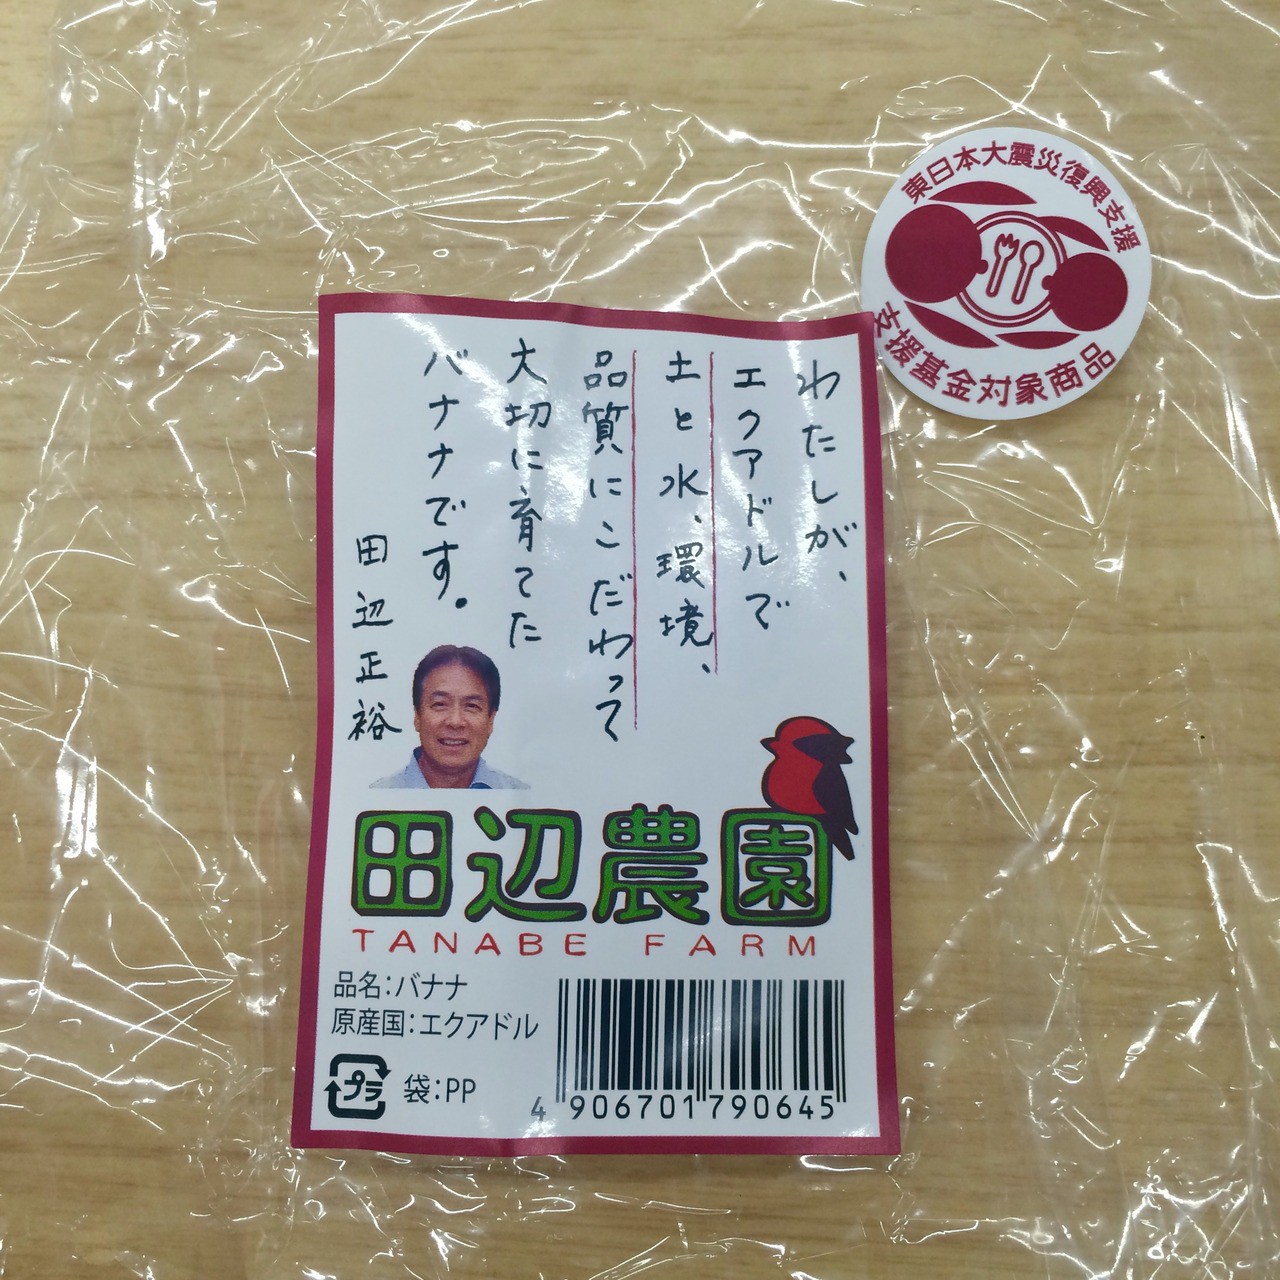 東日本大震災復興支援
支援基金対象商品
わたしが、
エクアドルで
土と水、環境、
品質にこだわって
大切に育てた
バナナです。
田辺正裕
田辺農園
TANABE FARM
品名:バナナ
原産国:エクアドル
プラ
袋:PP
4 906701 790645